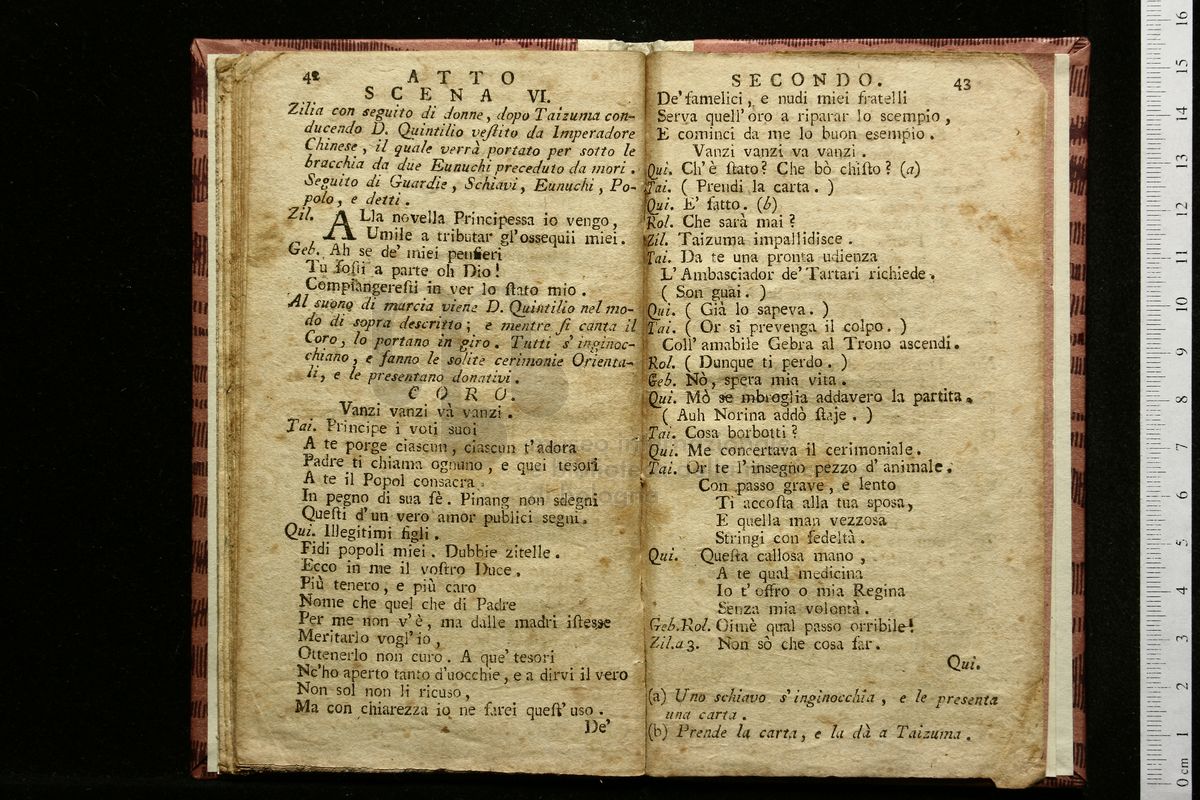 42
ATTO
SCENA VI.
Zilia con seguito di donne, dopo Taizuma con-
ducendo D. Quintilio veſtito da Imperadore
Chinese, il quale verrà portato per sotto le
bracchia da due Eunuchi preceduto da mori.
Seguito di Guardie, Schiavi, Eunuchi, Po-
polo, e detti.
Zil. ALla novella Principessa io vengo,
Umile a tributar gl'ossequii miei.
Geb. Ah se de' miei pensieri
Tu foſii a parte oh Dio!
Compiangereſii in ver lo ſtato mio.
Al suono di marcia viene D. Quintilio nel mo-
do di sopra descritto; e mentre ſi canta il
Coro, lo portano in giro. Tutti s'inginoc-
chiano, e fanno le solite cerimonie Orienta-
li, e le presentano donativi.
CORO.
Vanzi vanzi và vanzi.
Tai. Principe i voti suoi
A te porge ciascun, ciascun t'adora
Padre ti chiama ognuno, e quei tesori
A te il Popol consacra.
In pegno di sua fè. Pinang non sdegni
Queſti d'un vero amor publici segni.
Qui. Illegitimi figli.
Fidi popoli miei. Dubbie zitelle.
Ecco in me il voſtro Duce.
Più tenero, e più caro
Nome che quel che di Padre
Per me non v'è, ma dalle madri iſtesse
Meritarlo vogl'io,
Ottenerlo non curo. A que' tesori
Nc'ho aperto tanto d'uocchie, e a dirvi il vero
Non sol non li ricuso,
Ma con chiarezza io ne farei queſt'uso.
De'
SECONDO.
43
De' famelici, e nudi miei fratelli
Serva quell'oro a riparar lo scempio,
E cominci da me lo buon esempio.
Vanzi vanzi va vanzi.
Qui. Ch'è ſtato? Che bò chiſto? (a)
Tai. ( Prendi la carta. )
Qui. E' fatto. (b)
Rol. Che sarà mai?
Zil. Taizuma impallidisce.
Tai. Da te una pronta udienza
L'Ambasciador de' Tartari richiede.
( Son guai. )
Qui. ( Già lo sapeva. )
Tai. ( Or si prevenga il colpo. )
Coll' amabile Gebra al Trono ascendi.
Rol. ( Dunque ti perdo. )
Geb. Nò, spera mia vita.
Qui. Mò se mbroglia addavero la partita.
( Auh Norina addò ſtaje. )
Tai. Cosa borbotti?
Qui. Me concertava il cerimoniale.
Tai. Or te l'insegno pezzo d'animale.
Con passo grave, e lento
Ti accoſta alla tua sposa,
E quella man vezzosa
Stringi con fedeltà.
Qui. Queſta callosa mano,
A te qual medicina
Io t'offro o mia Regina
Senza mia volontà.
Geb. Rol. Oimè qual passo orribile!
Zil. a 3. Non sò che cosa far.
Qui.
(a) Uno schiavo s'inginocchia, e le presenta
una carta.
(b) Prende la carta, e la dà a Taizuma.
0 cm 1 2 3 4 5 6 7 8 9 10 11 12 13 14 15 16